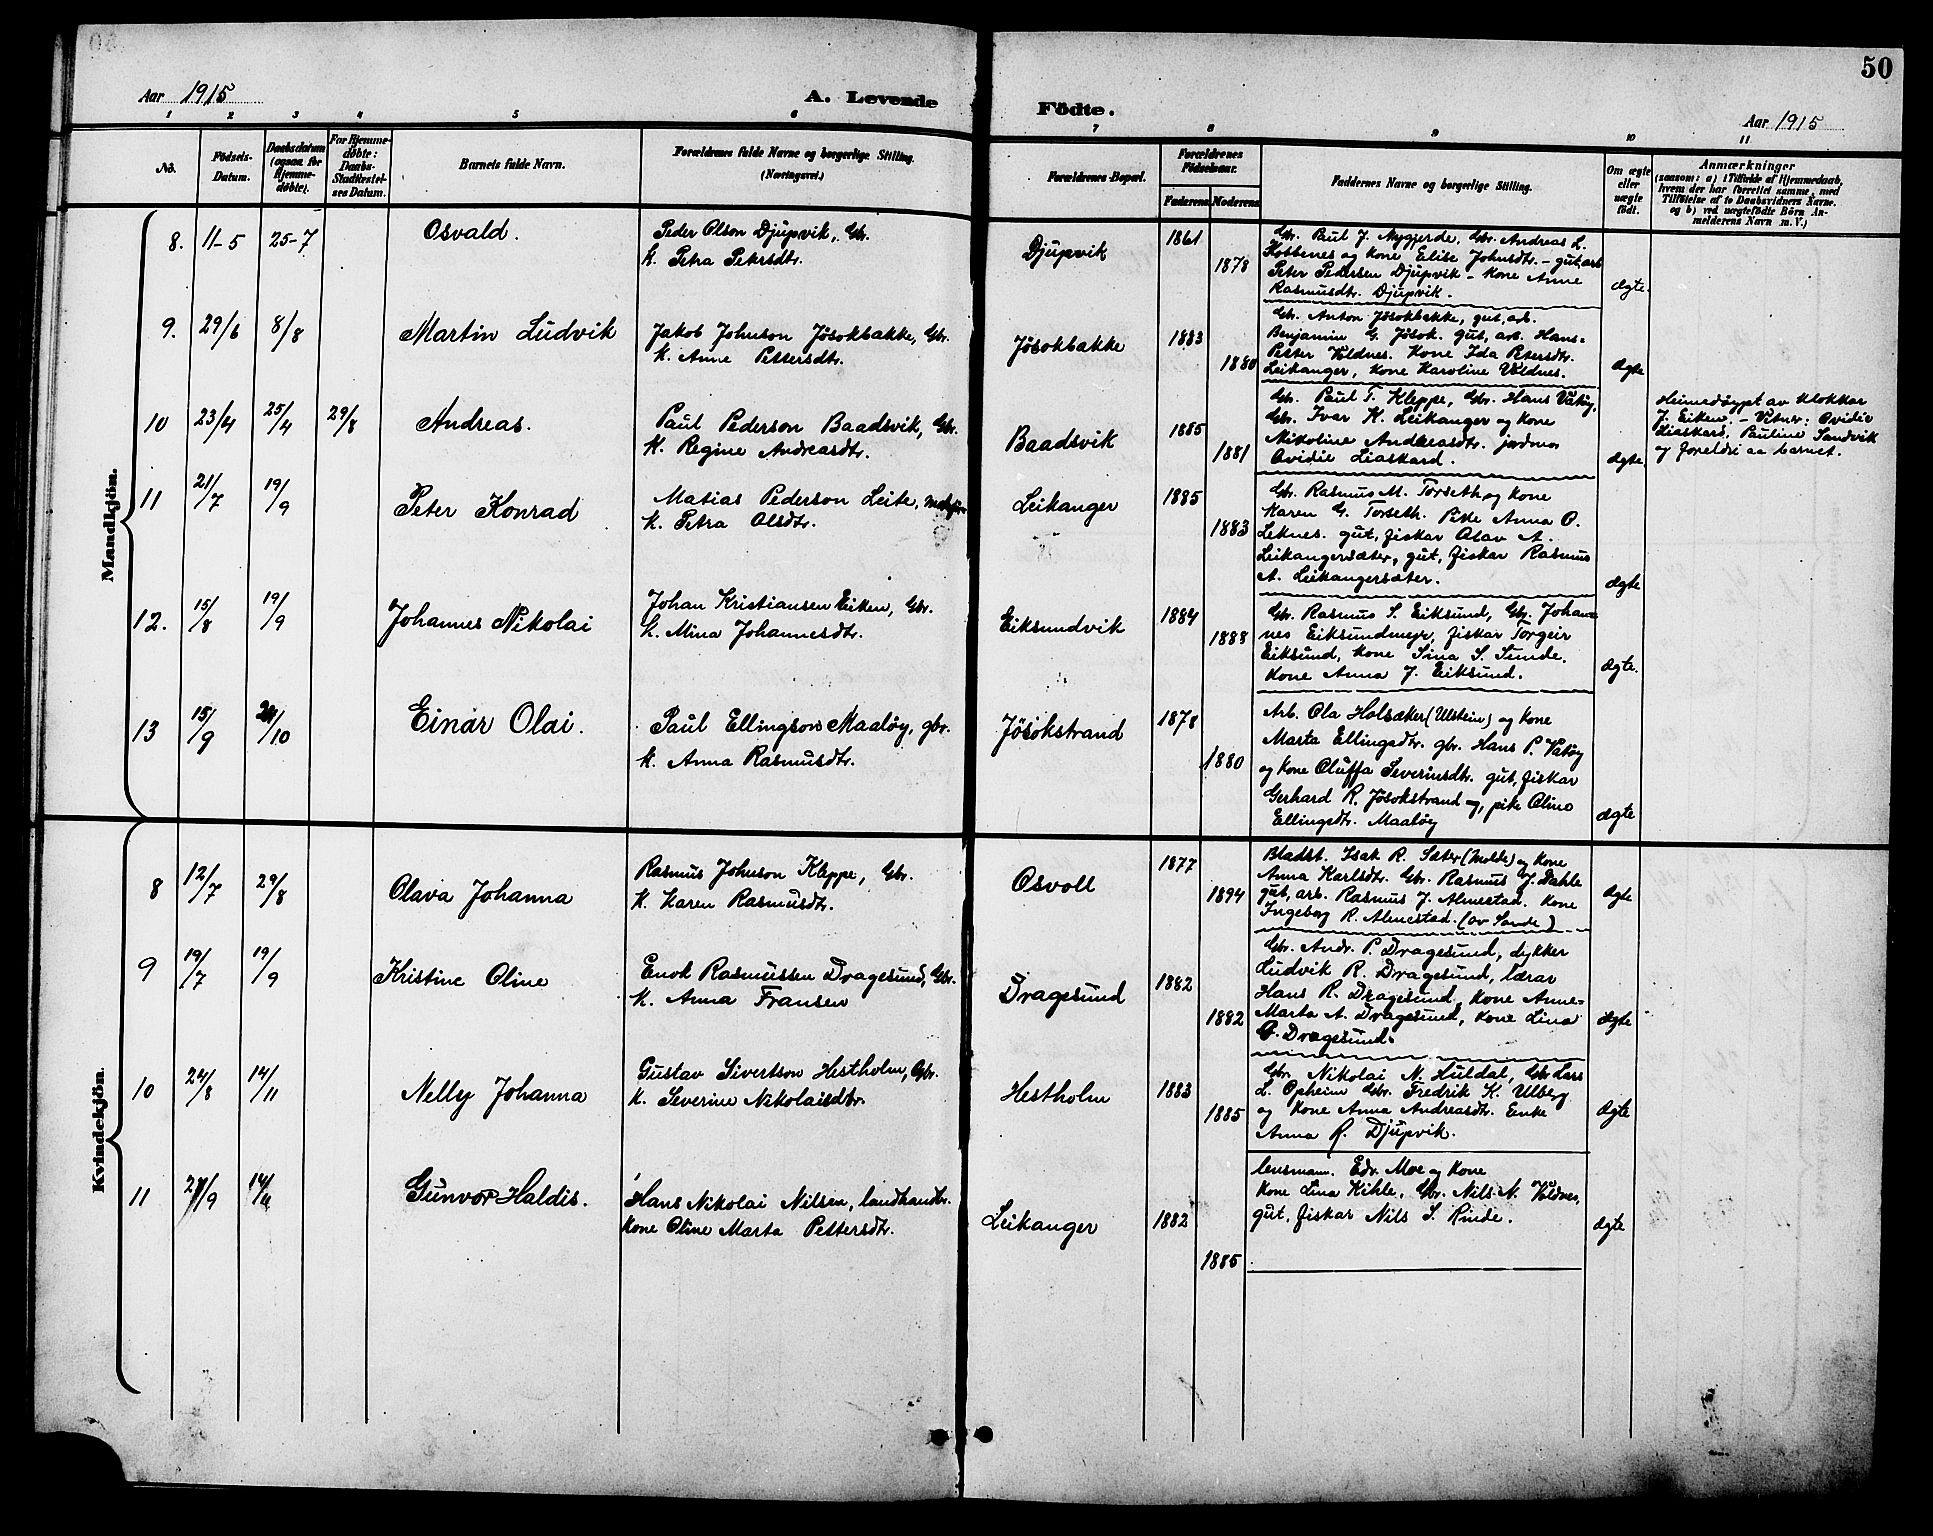 50
Aar 1915
A. Levende
Födte.
Aar 1915
1 2 3 4 5 6 7 8 9 10 11
No.
Födsels-
Datum.
Daabsdatum
(ogsaa for
Hjemme-
döbte).
For Hjemme-
döbte:
Daabs-
Stadfæstel-
ses Datum.
Barnets fulde Navn.
Forældrenes fulde Navne og borgerlige Stilling.
(Næringsvei.)
Forældrenes Bopæl.
Forældrenes
Födselsaar.
Faderens Moderens
Faddernes Navne og borgerlige Stilling.
Om ægte
eller
uægte
født.
Anmærkninger
(saasom: a) i Tilfælde af Hjemmedaab,
hvem der har forrettet samme, med
Tilföielse af to Daabsvidners Navne.
og b) ved uægtefödte Börn An-
melderens Navn m. V.)
Mandkjön.
8. 11-5 25-7
Osvald.
Peder Olson Djupvik, Gbr.
K. Petra Petersdtr.
Djupvik
1861
1878
Gbr. Paul J. Nygjerde, Gbr. Andreas L.
Kobbenes og Kone Elise Johnsdtr. - gut, arb
Peter Pedersen Djupvik - Kone Anne
Rasmusdtr. Djupvik.
Ægte.
9. 29/6 8/8
Martin Ludvik
Jakob Johnson Jösokbakke, Gbr.
K. Anne Pettersdtr.
Jösokbakke
1883
1880
Gbr. Anton Jösokbakke, gut, arb.
Benjamin G. Jösok. gut, arb. Hans-
Petter Voldnes. Kone Ida Petersdtr.
Leikanger, Kone Karoline Voldnes.
Ægte
10 23/4 25/4 29/8
Andreas.
Paul Pederson Baadsvik, Gbr.
K. Regine Andreasdtr.
Baadsvik
1885
1881
Gbr. Paul T. Kleppe, Gbr. Hans Vatöy,
Gbr. Ivar K. Leikanger og Kone
Nikoline Andreasdtr. jordmor
Ovidie Liaskard.
Ægte.
Heimedöypt av klokkar
J. Eiken. - Vitner: Ovidie
Liaskard, Pauline Sandvik
og foreldri aa barnet.
11 21/7 19/9
Peter Konrad
Matias Pederson Leite,
K. Petra Olsdtr.
Leikanger
1885
1883
Gbr. Rasmus M. Torseth og Kone
Karen G. Torseth. Pike Anna O.
Leknes. gut, fiskar Olav A.
Leikangersæter, gut, fiskar Rasmus
A. Leikangersæter.
Ægte
12. 15/8 19/9
Johannes Nikolai
Johan Kristiansen Eiken, Gbr.
K. Mina Johannesdtr.
Eiksundvik
1884
1888
Gbr. Rasmus S. Eiksund, Gbr. Johan-
nes Eiksundmyr, fiskar Torgeir
Eiksund, Kone Sina S. Sunde.
Kone Anna J. Eiksund.
Ægte.
13 15/9 /10
Einar Olai.
Paul Ellingson Maalöy, gbr.
K. Anna Rasmusdtr.
Jösokstrand
1878
1880
Arb. Ola Holsæker (Ulstein) og Kone
Marta Ellingsdtr. gbr. Hans P. Vatöy
og Kone Oluffa Severinsdtr. gut, fiskar
Gerhard R. Jösokstrand og, pike Oline
Ellingsdtr. Maalöy
Ægte
Kvindekjön.
8 12/7 29/8
Olava Johanna
Rasmus Johnson Kleppe, Gbr.
K. Karen Rasmusdtr.
Osvoll
1877
1894
Bladst. Isak R. Sæter (Molde) og Kone
Anna Karlsdtr. Gbr. Rasmus J. Dahle
gut, arb. Rasmus J. Almestad. Kone
Ingeborg R. Almestad. (av Sande)
Ægte
9 19/7 19/9
Kristine Oline
Enok Rasmussen Dragesund, Gbr.
K. Anna Fransen
Dragesund
1882
1882
Gbr. Andr. P. Dragesund, dykker
Ludvik R. Dragesund, lærar
Hans R. Dragesund, Kone Anne-
Marta A. Dragesund, Kone Lina
G. Dragesund.
Ægte
10 24/8 14/11
Nelly Johanna
Gustav Sivertson Hestholm, Gbr.
K. Severine Nikolaisdtr.
Hestholm
1883
1885
Gbr. Nikolai N. Huldal, Gbr. Lars
L. Opheim Gbr. Fredrik K. Ulberg
og Kone Anna Andreasdtr. Enke
Anna R. Djupvik.
Ægte
11 /9 14/11
Gunvor Haldis.
Hans Nikolai Nilsen, landhandlr.
Kone Oline Marta Pettersdtr.
Leikanger
1882
1885
lensmann. Edv. Moe og Kone
Kone Lina Kihle, Gbr. Nils N. Voldnes,
gut, fiskar Nils S. Rinde.
Ægte